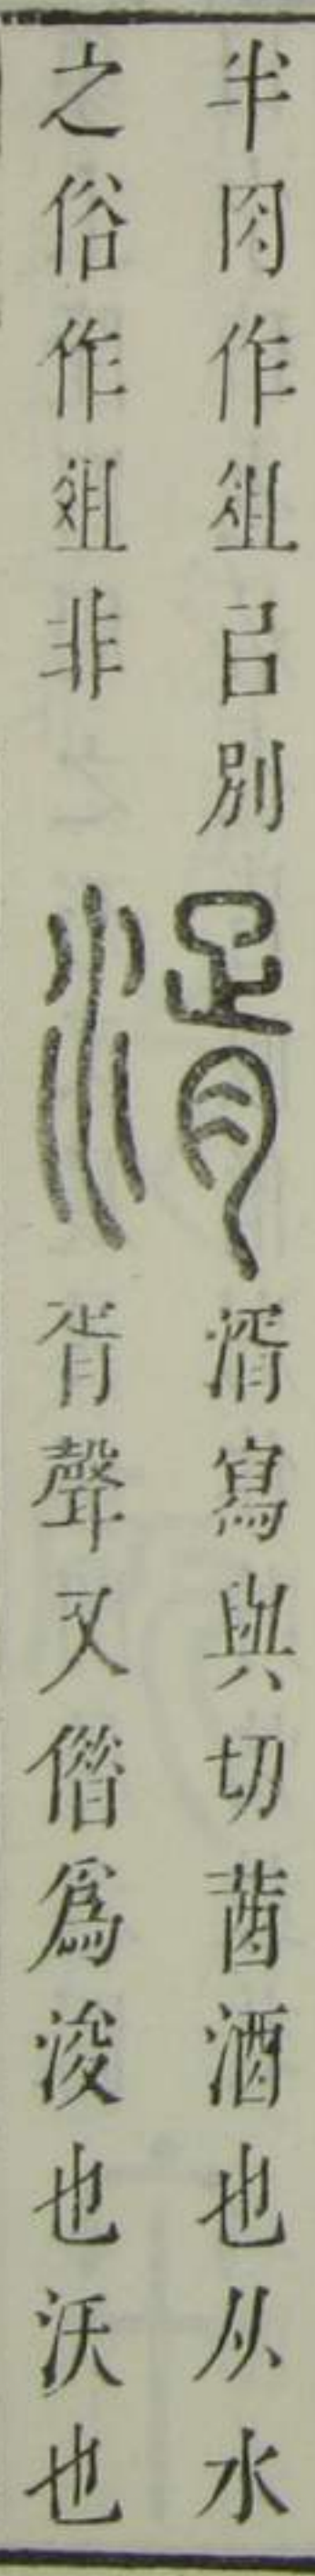 半肉作俎㠯別
之俗作爼非
湑
湑寫與切莤酒也从水
胥聲又偺爲浚也沃也